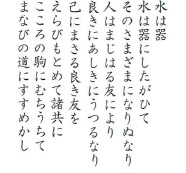 水は器
水は器にしたがひて
そのさまざまになりぬなり
人はまじはる友により
良きにあしきにうつるなり
己にまさる良き友を
えらびもとめて諸共に
こころの駒にむちうちて
まなびの道にすすめかし